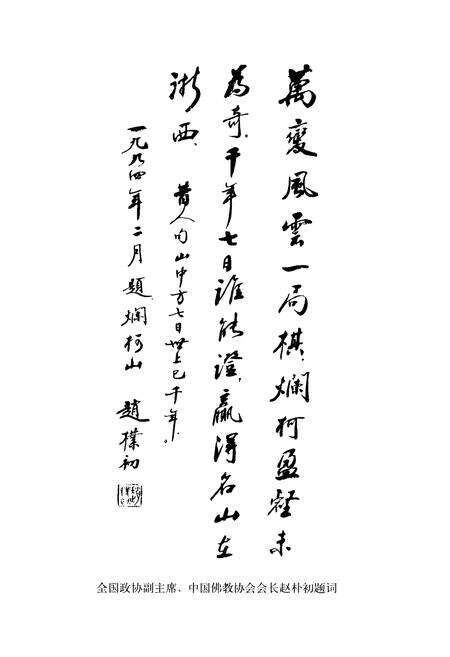 萬變風雲一局棋，爛柯盈壑未
為奇，千年七日誰能證，贏得名山在
浙西。
昔人句山中方七日世上已千年。
一九九四年二月題爛柯山
趙樸初
全国政协副主席、中国佛教协会会长赵朴初题词